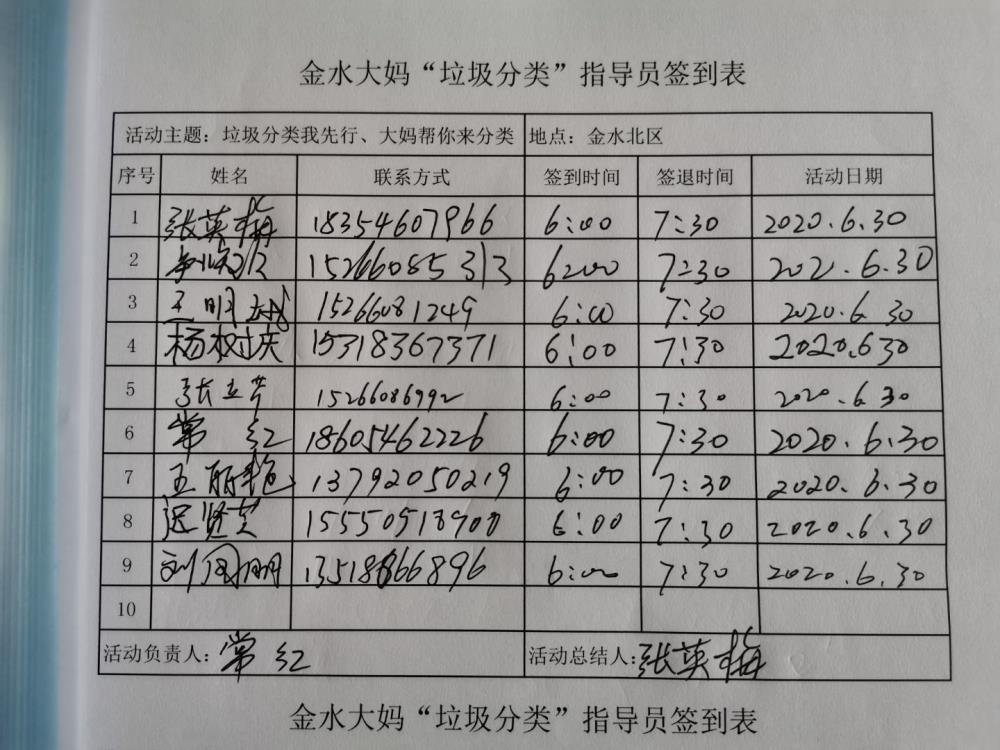 金水大妈“垃圾分类”指导员签到表
活动主题：垃圾分类我先行、大妈帮你来分类 地点：金水北区
序号 姓名 联系方式 签到时间 签退时间 活动日期
1 张英梅 18354607966 6:00 7:30 2020.6.30
2 15266085313 6:00 7:30 2020.6.30
3 王明 15266081249 6:00 7:30 2020.6.30
4 杨树庆 15318367371 6:00 7:30 2020.6.30
5 张立芳 15266086992 6:00 7:30 2020.6.30
6 常红 18605462226 6:00 7:30 2020.6.30
7 王丽艳 13792050219 6:00 7:30 2020.6.30
8 迟贤芝 6:00 7:30 2020.6.30
9 刘凤明 6:00 7:30 2020.6.30
10
活动负责人：常红 活动总结人：张英梅
金水大妈“垃圾分类”指导员签到表